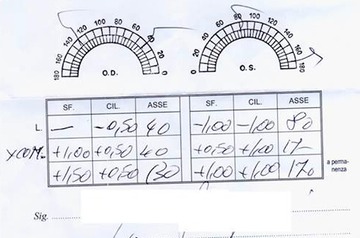 180 160 140 120 100 80 60 40 20 0
O.D.
180 160 140 120 100 80 60 40 20 0
O.S.
SF. CIL. ASSE SF. CIL. ASSE
L. — -0,50 40 -1,00 -1,00 80
+1,00 +0,50 40 +0,50 +1,00
+1,50 +0,50 130 +1,00 +1,00 170
a perma-
nenza
Sig.